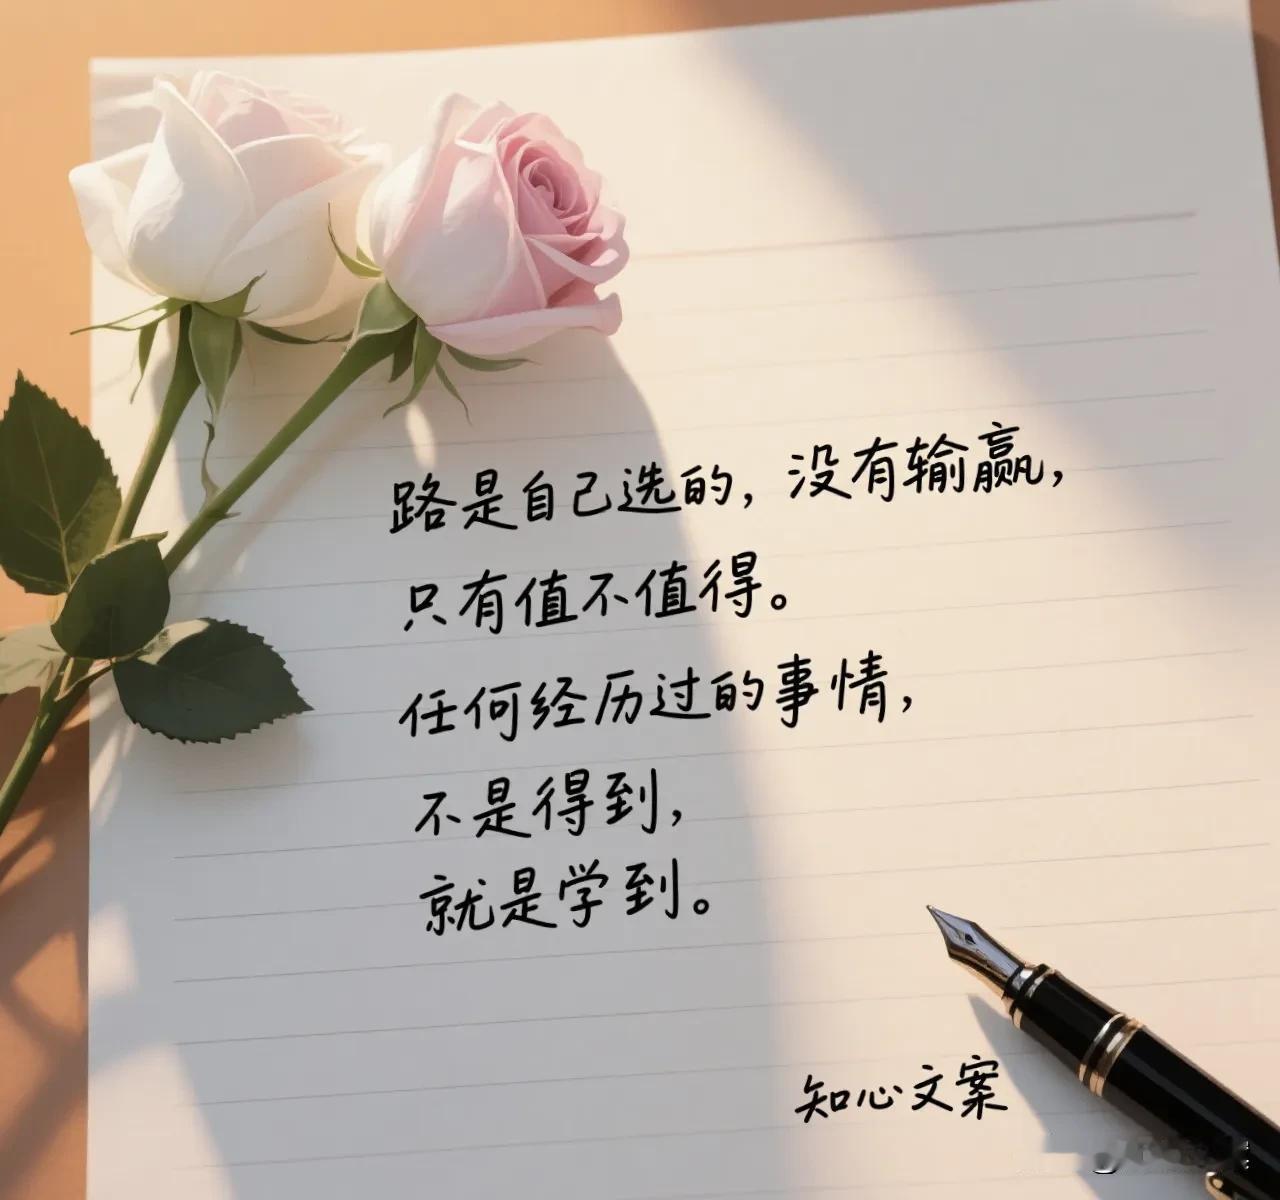 路是自己选的，没有输赢，
只有值不值得。
任何经历过的事情，
不是得到，
就是学到。
知心文案